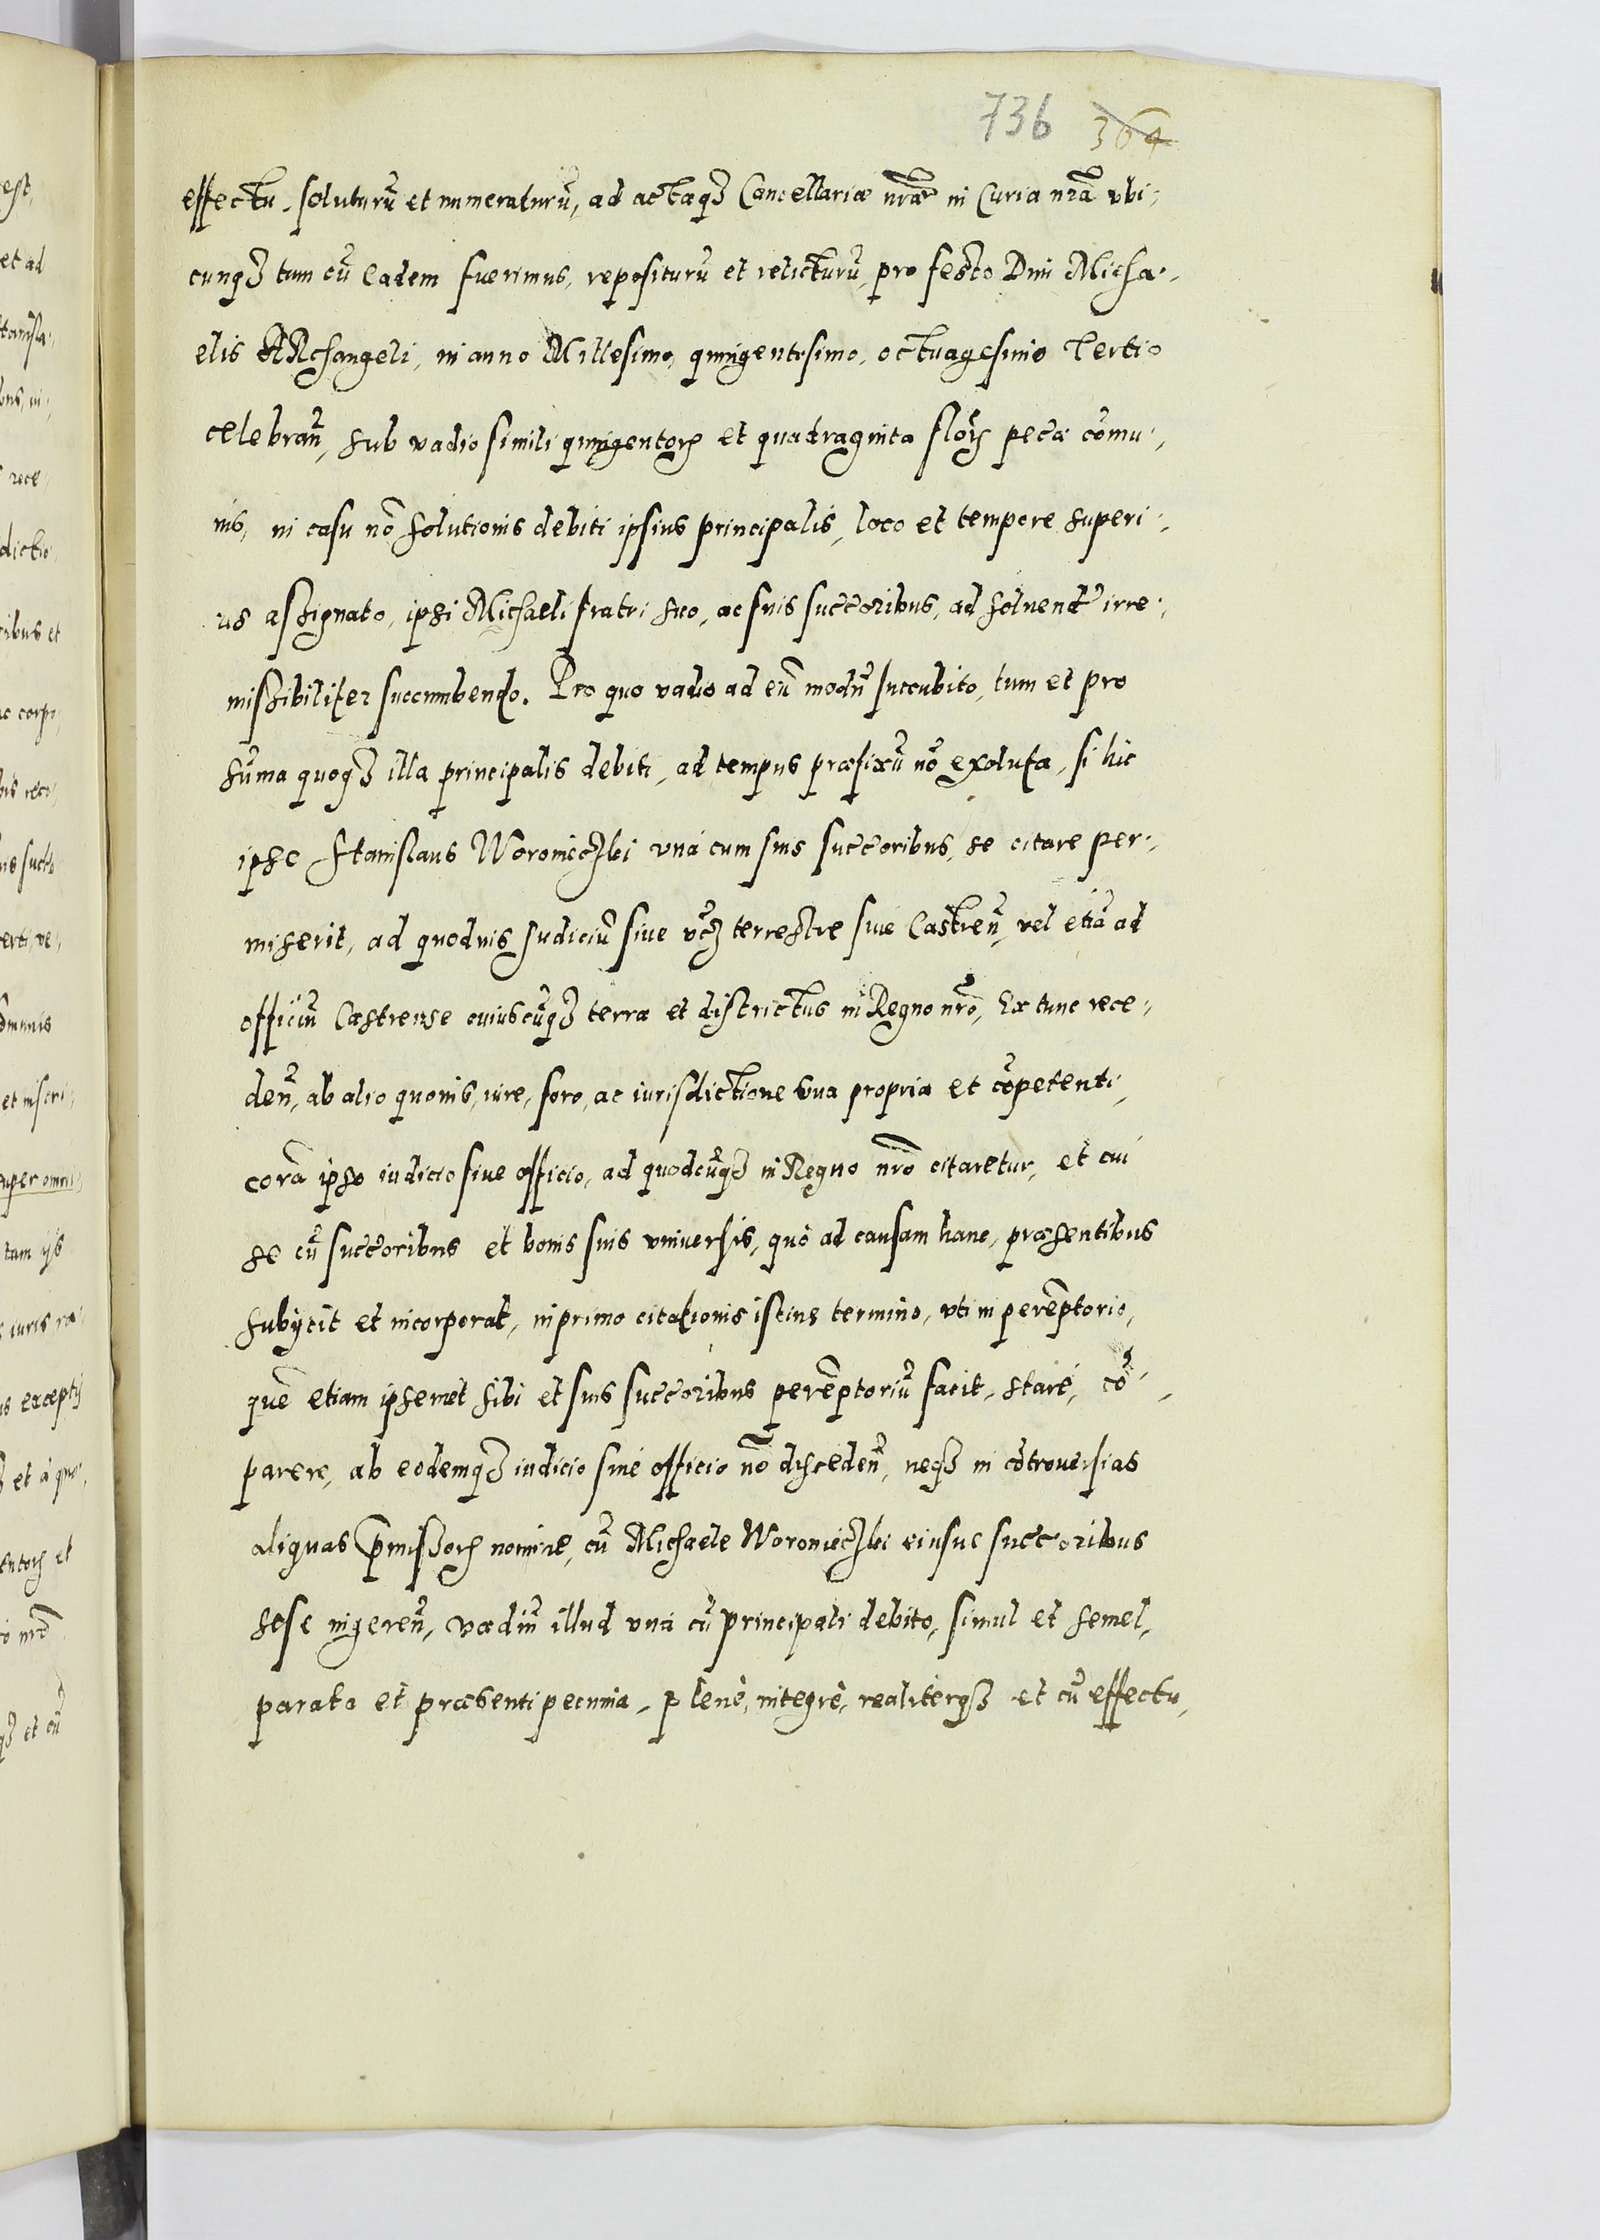 736 364
effectu, soluturũ et numeraturũ, ad actaq₃ Cancellariæ nrãe in Curia nrã vbi-
cunq₃ tum cũ eadem fuerimus, repositurũ et relicturũ, pro festo Diui Micha-
elis ARchangeli, in anno Millesimo, quingentesimo, octuagesimo tertio
celebrañ, sub vadio simili quingentoꝝ et quadraginta floꝝ pecæ cõmu-
nis, in casu nõ solutionis debiti ipsius principalis, loco et tempore superi-
us assignato, ipsi Michaeli fratri suo, ac suis succoribus, ad soluend̃ irre-
missibiliter succumbendo. Pro quo vadio ad eũ modũ succubito, tum et pro
sũma quoq₃ illa principalis debiti, ad tempus præfixũ nõ exoluta, si hic
ipse Stanislaus Woroniec₃ki vná cum suis succoribus, se citare per-
miserit, ad quoduis Judiciũ siue vc₃ terrestre siue Castreñ, vel etiã ad
officiũ Castrense cuiuscũq₃ terræ et districtus in Regno nrõ, Ex tunc rece-
deñ, ab alio quouis, iure, foro, ac iurisdictione sua propria et cõpetenti,
corã ipso iudicio siue officio, ad quodcũq₃ in Regno nrõ citaretur, et cui
se cũ succoribus et bonis suis vniuersis, quò ad causam hanc, præsentibus
subijcit et incorporat, in primo citationis istius termino, vti in perẽptorio,
quẽ etiam ipsemet sibi et suis succoribus perẽptoriũ facit, stare, cõ-
parere, ab eodemq₃ iudicio siué officio nõ discedeñ, neq₃ in cõtrouersias
aliquas p̃missoꝝ nomine, cũ Michaele Woroniec₃ki eiusue succoribus
sese ingereñ, vadiũ illud vná cũ principali debito, simul et semel,
parata et præsenti pecunia, plenè, integrè, realiterq₃ et cũ effectu,